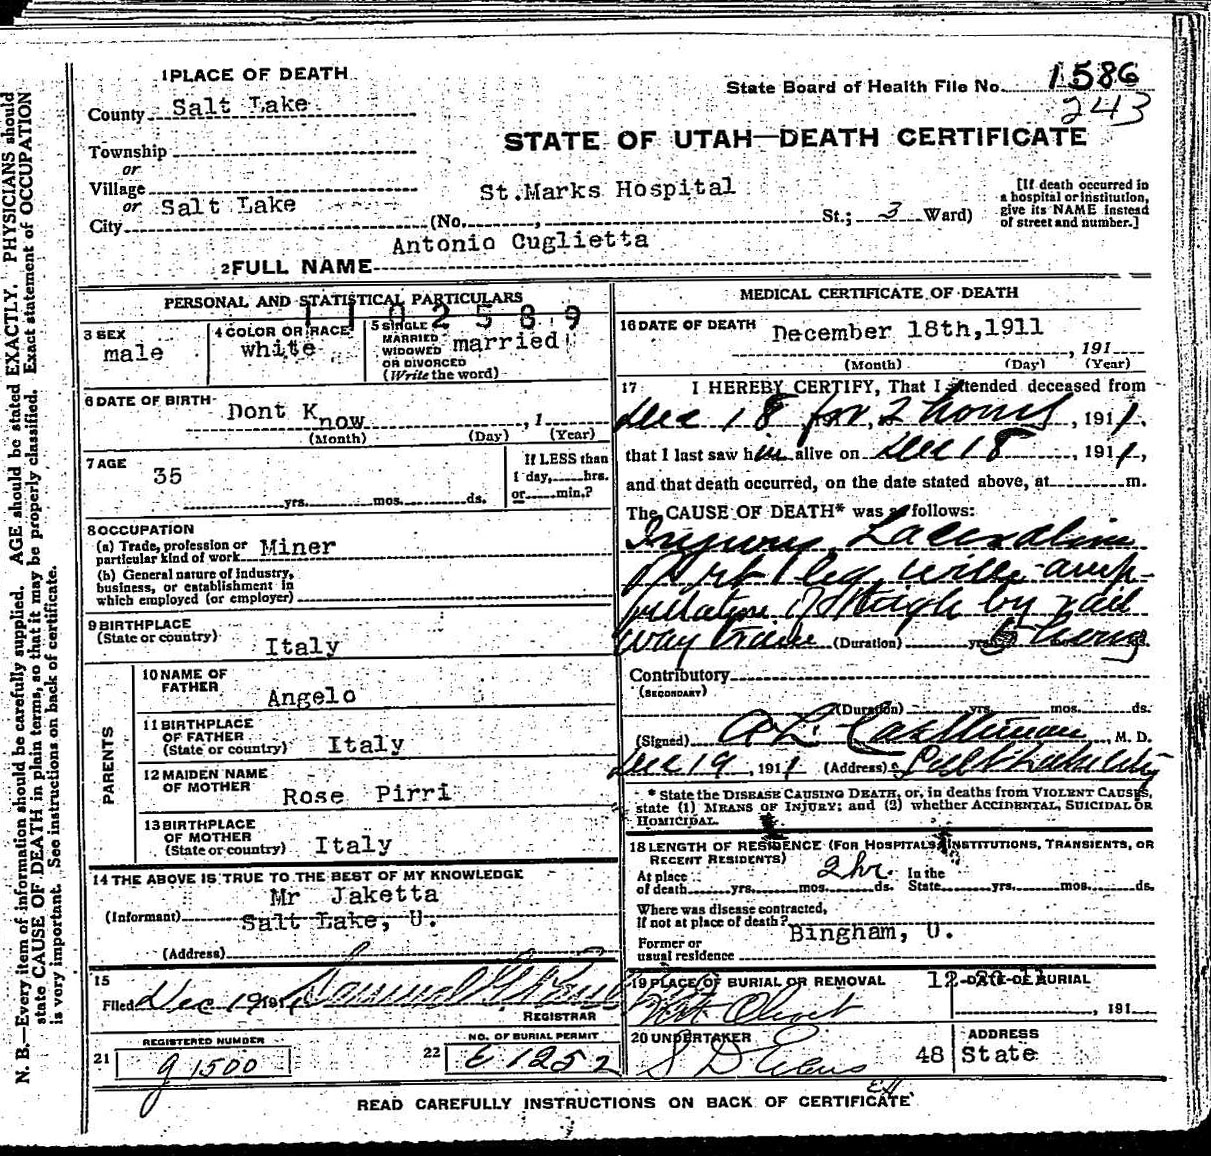 1 PLACE OF DEATH
State Board of Health File No. 1586
243
County Salt Lake
STATE OF UTAH—DEATH CERTIFICATE
Township
or
Village
or
City Salt Lake
St.Marks Hospital
(No. , St.; 3 Ward)
[If death occurred in
a hospital or institution,
give its NAME instead
of street and number.]
2 FULL NAME Antonio Cuglietta
PERSONAL AND STATISTICAL PARTICULARS
1102589
3 SEX
male
4 COLOR OR RACE
white
5 SINGLE
MARRIED
WIDOWED
OR DIVORCED
(Write the word)
married
6 DATE OF BIRTH
Dont Know , 1
(Month) (Day) (Year)
7 AGE
35
yrs. mos. ds.
If LESS than
1 day, hrs.
or min.?
8 OCCUPATION
(a) Trade, profession or
particular kind of work Miner
(b) General nature of industry,
business, or establishment in
which employed (or employer)
9 BIRTHPLACE
(State or country)
Italy
PARENTS
10 NAME OF
FATHER
Angelo
11 BIRTHPLACE
OF FATHER
(State or country) Italy
12 MAIDEN NAME
OF MOTHER
Rose Pirri
13 BIRTHPLACE
OF MOTHER
(State or country) Italy
14 THE ABOVE IS TRUE TO THE BEST OF MY KNOWLEDGE
(Informant) Mr Jaketta
Salt Lake, U.
(Address)
15
Filed Dec 19 191
REGISTRAR
REGISTERED NUMBER
21 g 1500
NO. OF BURIAL PERMIT
22 E 1252
MEDICAL CERTIFICATE OF DEATH
16 DATE OF DEATH December 18th, 1911
, 191
(Month) (Day) (Year)
17 I HEREBY CERTIFY, That I attended deceased from
Dec 18 for 2 hours, 1911,
that I last saw him alive on Dec 18, 1911,
and that death occurred, on the date stated above, at m.
The CAUSE OF DEATH* was as follows:
Injury, Laceration
of rt leg, with amp-
utation of thigh by rail
way train (Duration) yrs. 5 hours ds.
Contributory
(SECONDARY)
(Duration) yrs. mos. ds.
(Signed) A L Castleman, M. D.
Dec 19, 1911 (Address) Salt Lake City
* State the DISEASE CAUSING DEATH, or, in deaths from VIOLENT CAUSES,
state (1) MEANS OF INJURY; and (2) whether ACCIDENTAL, SUICIDAL OR
HOMICIDAL.
18 LENGTH OF RESIDENCE (FOR HOSPITALS, INSTITUTIONS, TRANSIENTS, OR
RECENT RESIDENTS)
At place
of death yrs. mos. ds. 2 hr. In the
State yrs. mos. ds.
Where was disease contracted,
if not at place of death? Bingham, U.
Former or
usual residence
19 PLACE OF BURIAL OR REMOVAL
Mt Olivet
DATE OF BURIAL
12-20-11
, 191
20 UNDERTAKER
S D Evans
ADDRESS
48 State
READ CAREFULLY INSTRUCTIONS ON BACK OF CERTIFICATE
N. B.—Every item of information should be carefully supplied. AGE should be stated EXACTLY. PHYSICIANS should
state CAUSE OF DEATH in plain terms, so that it may be properly classified. Exact statement of OCCUPATION
is very important. See instructions on back of certificate.